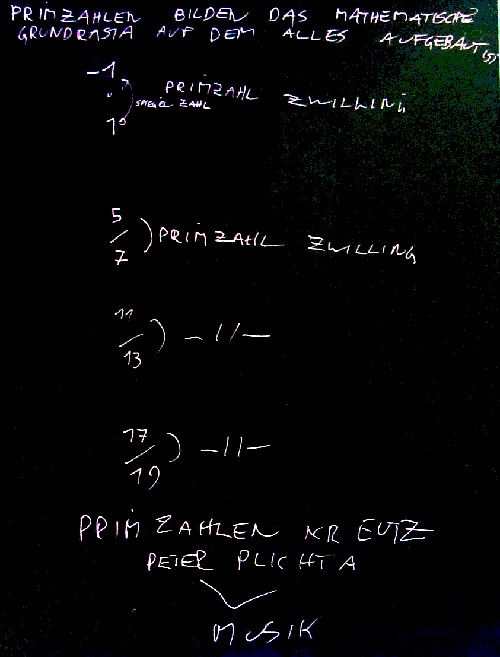 PRIMZAHLEN BILDEN DAS MATHEMATISCHE
GRUNDRASTA AUF DEM ALLES AUFGEBAUT
-1
PRIMZAHL ZWILLING
ZAHL
1
5
7
PRIMZAHL ZWILLING
11
13
-//-
17
19
-//-
PRIMZAHLEN KREUTZ
PETER PLICHTA
MUSIK